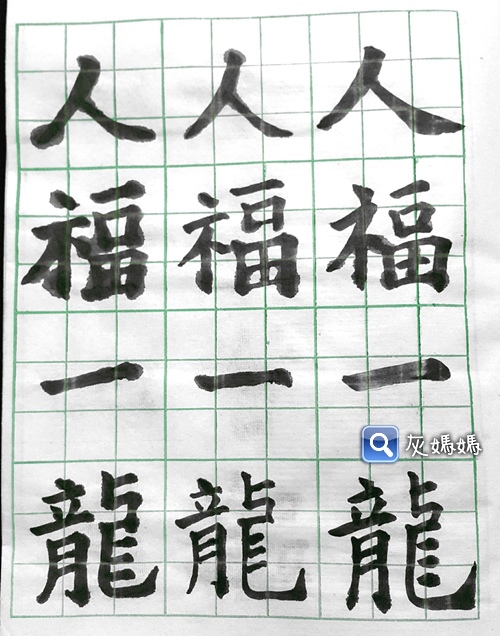 人福一龍
人福一龍
人福一龍
灰媽媽